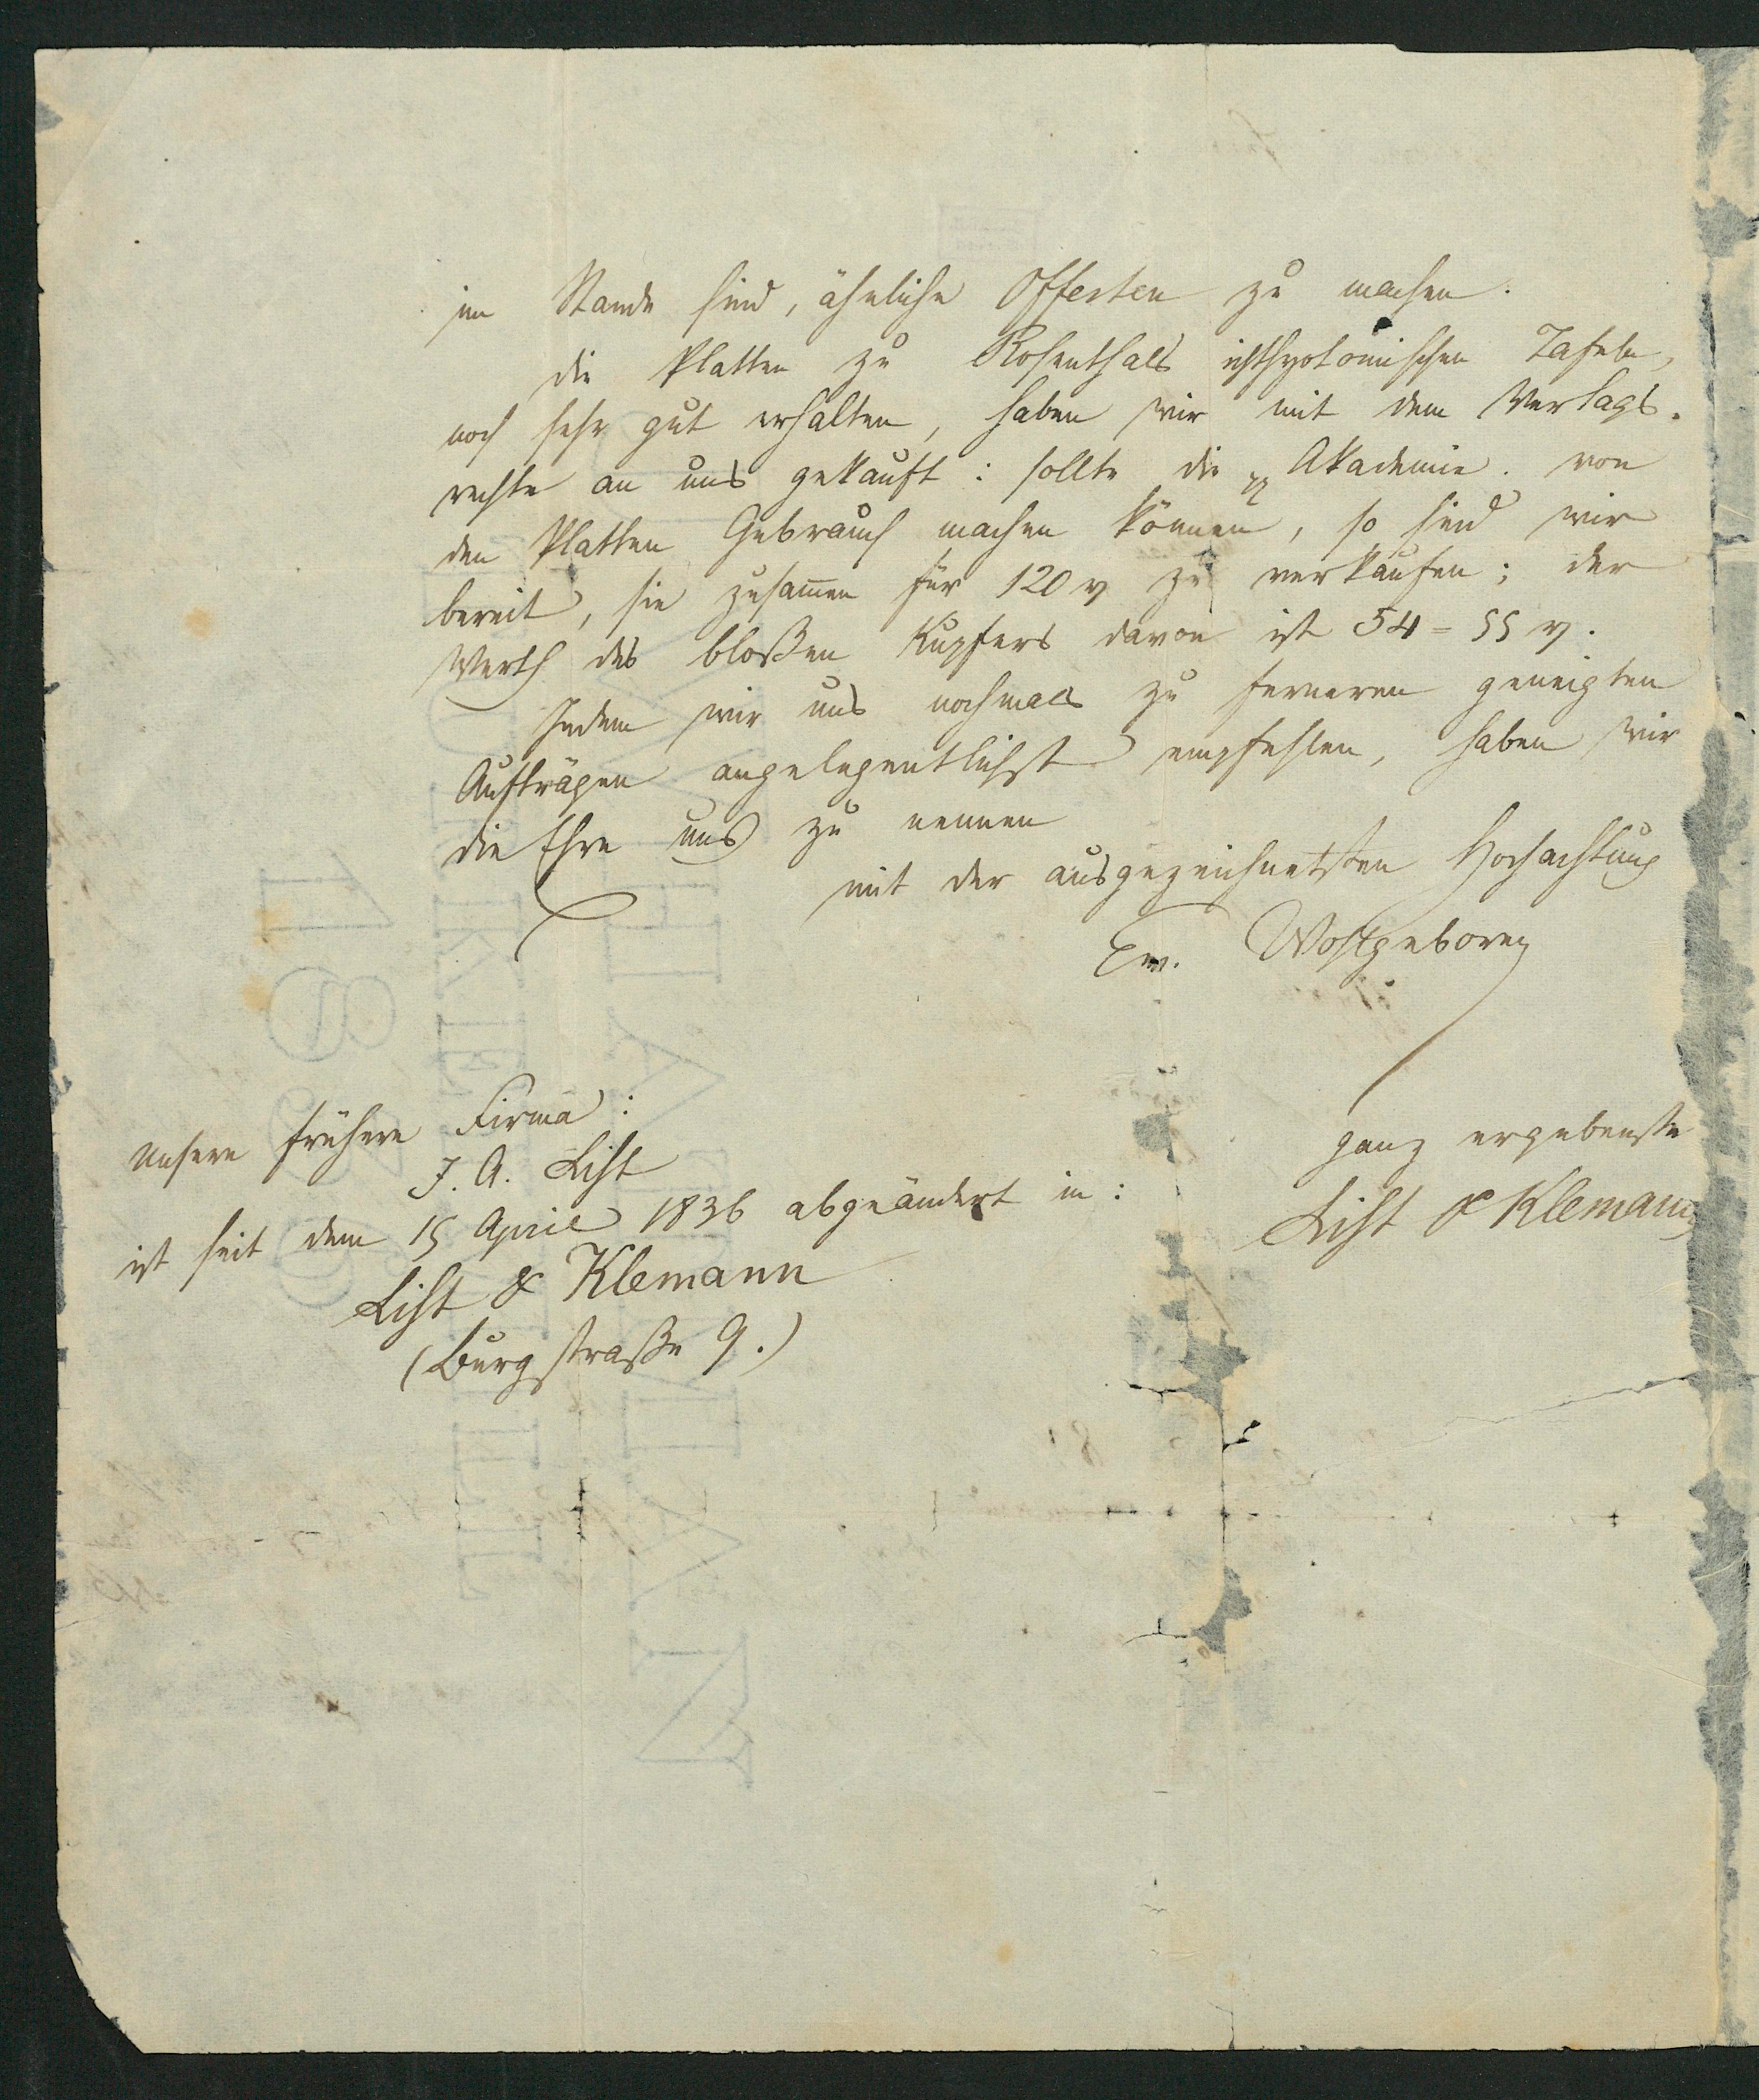 im Stande sind, ähnliche Offerten zu machen.
die Platten zu Rosenthals ichthyotomischen Tafeln,
noch sehr gut erhalten, haben wir mit dem Verlags-
rechte an uns gekauft: sollte die pp Akademie. von
den Platten Gebrauch machen können, so sind wir
bereit, sie zusam̄en für 120 zu verkaufen; der
Werth des bloßen Kupfers davon ist 54=55
Indem wir uns nochmals zu ferneren geneigten
Aufträgen angelegentlichst empfehlen, haben wir
die Ehre uns zu nennen
mit der ausgezeichnetsten Hochachtung
Ew. Wohlgeboren
ganz ergebenste
List & Klemann
Unsere frühere Firma:
J. A. List
ist seit dem 15 April 1836 abgeändert in:
List & Klemann
(Burgstraße 9.)